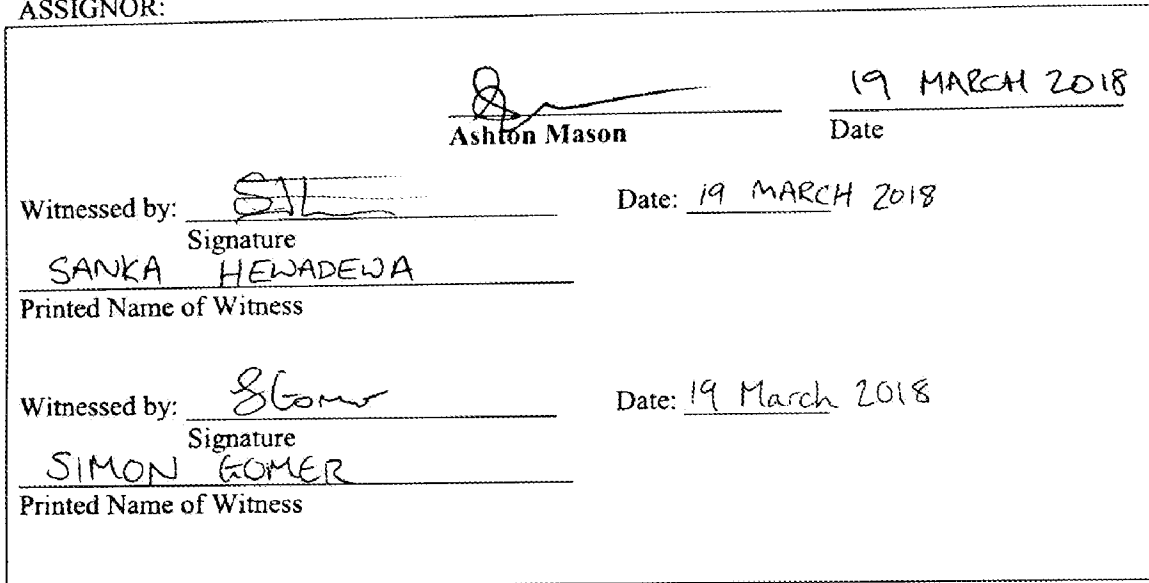 ASSIGNOR:
19 MARCH 2018
Ashton Mason Date
Witnessed by: Date: 19 MARCH 2018
Signature
SANKA HEWADEWA
Printed Name of Witness
Witnessed by: SGomer Date: 19 March 2018
Signature
SIMON GOMER
Printed Name of Witness